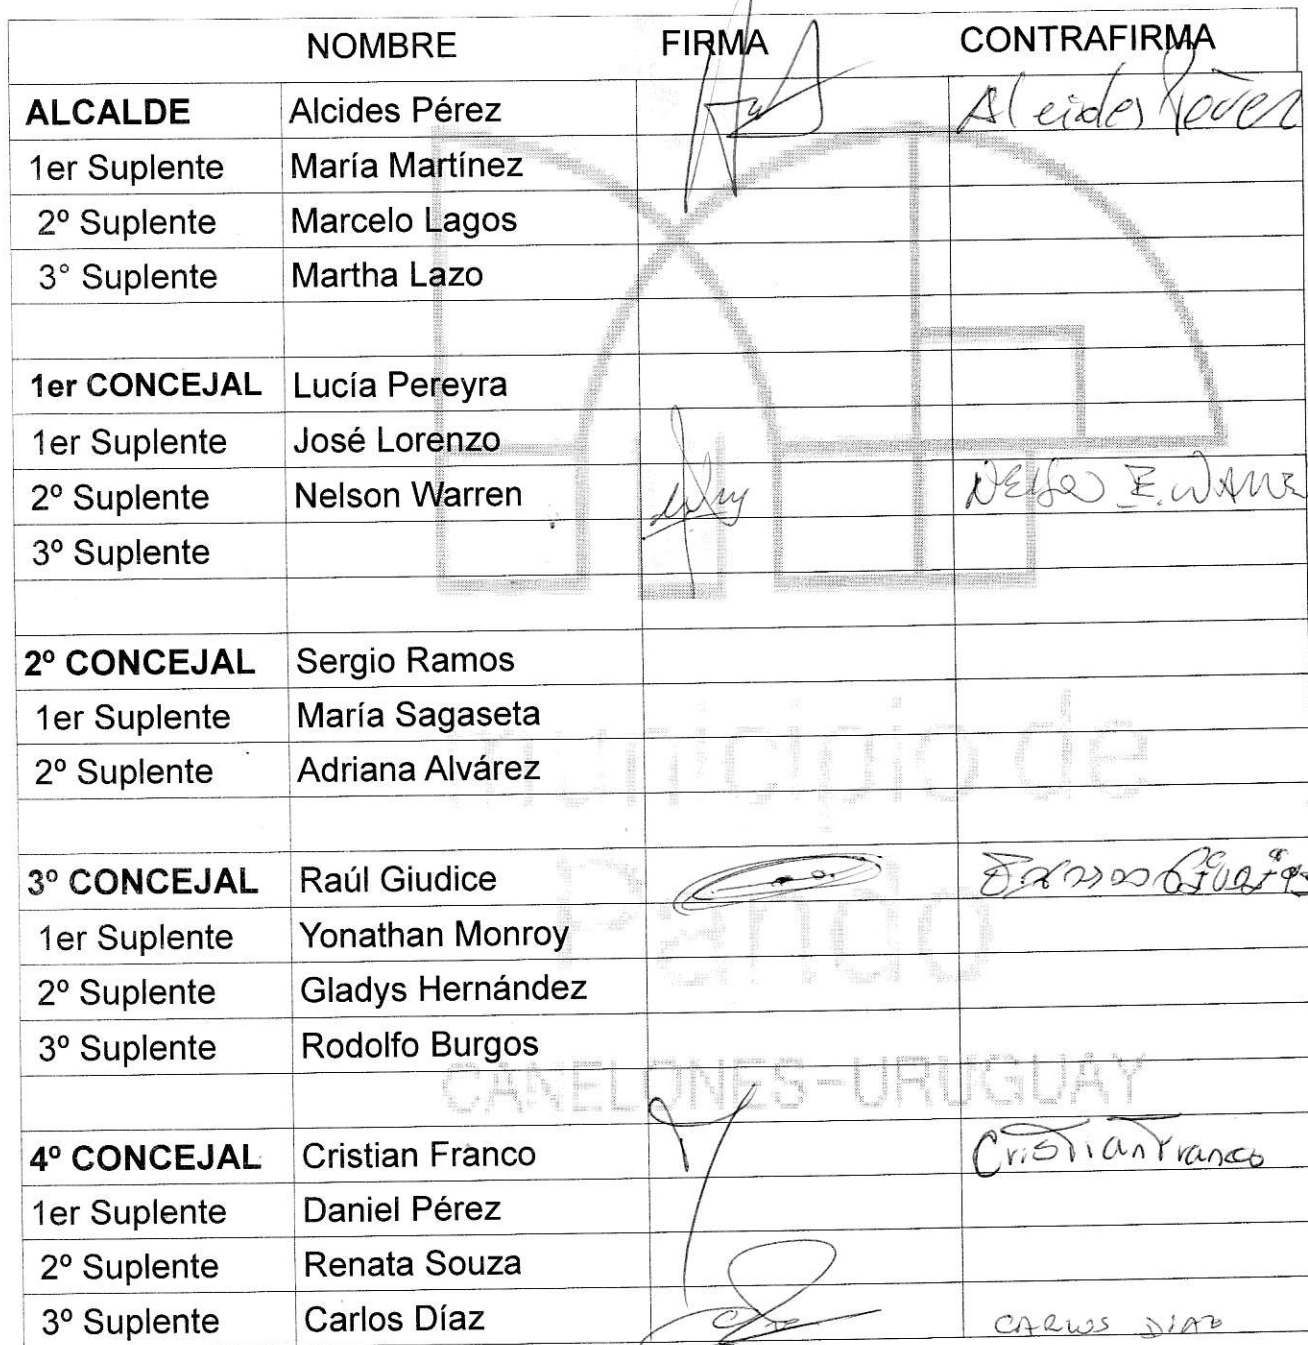 NOMBRE FIRMA CONTRAFIRMA
ALCALDE Alcides Pérez Alcides Pérez
1er Suplente María Martínez
2º Suplente Marcelo Lagos
3° Suplente Martha Lazo
1er CONCEJAL Lucía Pereyra
1er Suplente José Lorenzo
2º Suplente Nelson Warren E.
3º Suplente
2º CONCEJAL Sergio Ramos
1er Suplente María Sagaseta
2º Suplente Adriana Alvárez
Municipio de
3º CONCEJAL Raúl Giudice
Pando
1er Suplente Yonathan Monroy
2º Suplente Gladys Hernández
3º Suplente Rodolfo Burgos
CANELONES-URUGUAY
4º CONCEJAL Cristian Franco Cristian Franco
1er Suplente Daniel Pérez
2º Suplente Renata Souza
3º Suplente Carlos Díaz CARLOS DIAZ